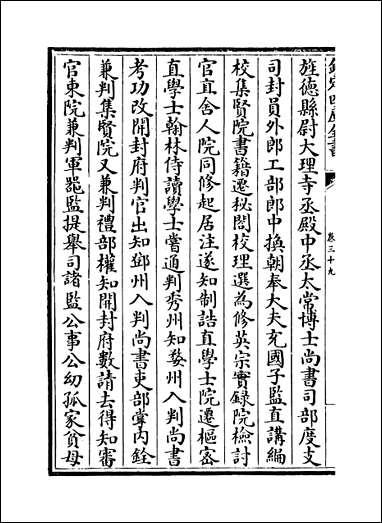 欽定四庫全書
卷三十九
旌德縣尉大理寺丞殿中丞太常博士尚書司部度支
司封員外郎工部郎中換朝奉大夫充國子監直講編
校集賢院書籍遷秘閣校理選為修英宗實錄院檢討
官直舍人院同修起居注遂知制誥直學士院遷樞密
直學士翰林侍讀學士嘗通判秀州知婺州入判尚書
考功改開封府判官出知鄧州入判尚書吏部掌內銓
兼判集賢院又兼判禮部權知開封府數請去得知審
官東院兼判軍器監提舉司諸監公事公幼孤家貧母